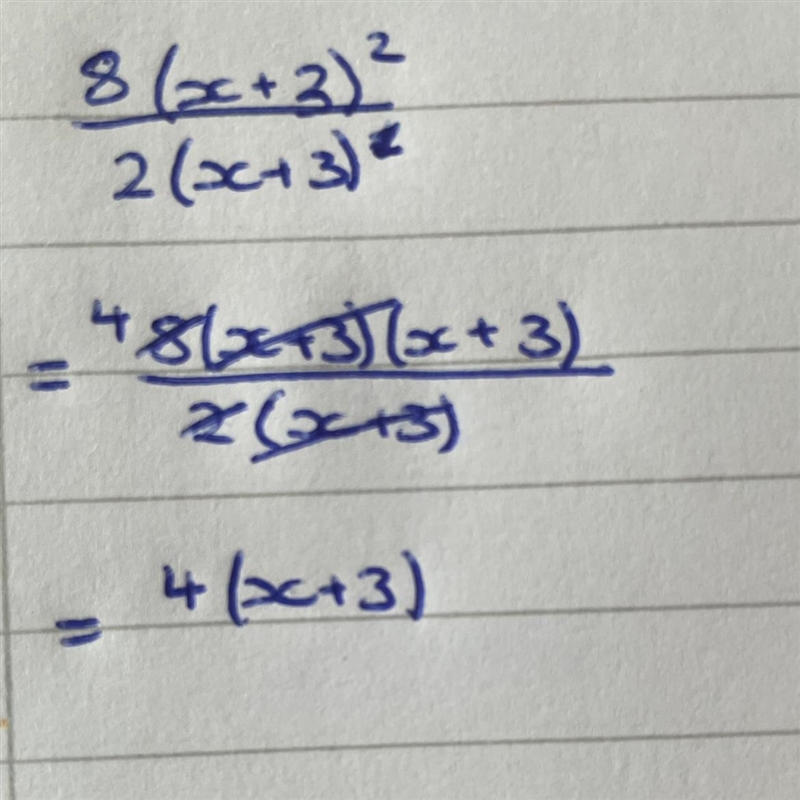 8(x+3)²
2(x+3)
= ⁴ 8(x+3)(x+3)
2(x+3)
= 4(x+3)